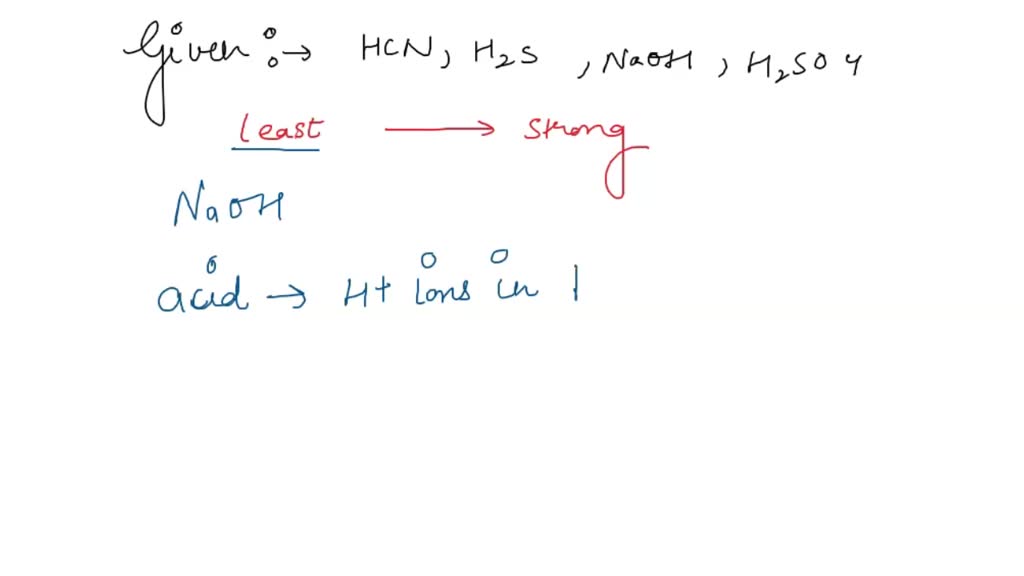 Given :→ HCN, H2S , NaOH , H2SO4
least → strong
NaOH
acid → H+ ions in